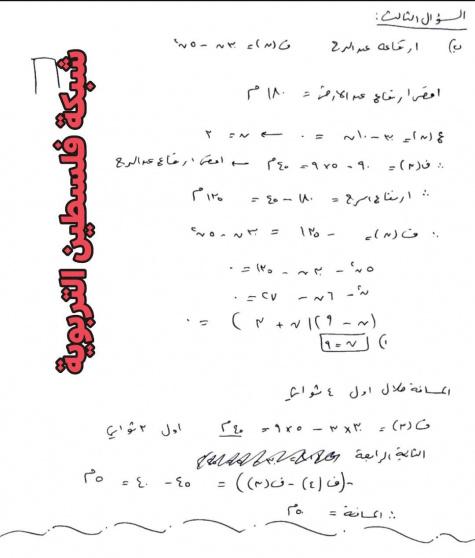 السؤال الثالث:
ب) ارتفاعه عن البرج ف(ن) = ٣٠ن - ٥ن²
أقصى ارتفاع عن الأرض = ١٨٠ م
ع(ن) = ٣٠ - ١٠ن = ٠ ← ن = ٣
∴ ف(٣) = ٩٠ - ٥×٩ = ٤٥ م ← أقصى ارتفاع عن البرج
∴ ارتفاع البرج = ١٨٠ - ٤٥ = ١٣٥ م
∴ ف(ن) = -١٣٥ = ٣٠ن - ٥ن²
٥ن² - ٣٠ن - ١٣٥ = ٠
ن² - ٦ن - ٢٧ = ٠
(ن - ٩)(ن + ٣) = ٠
١) ن = ٩
المسافة خلال اول ٤ ثواني
ف(٣) = ٣٠×٣ - ٥×٩ = ٤٥ م اول ٣ ثواني
الثانية الرابعة
-(ف(٤) - ف(٣)) = ٤٥ - ٤٠ = ٥ م
∴ المسافة = ٥٠ م
شبكة فلسطين التربوية